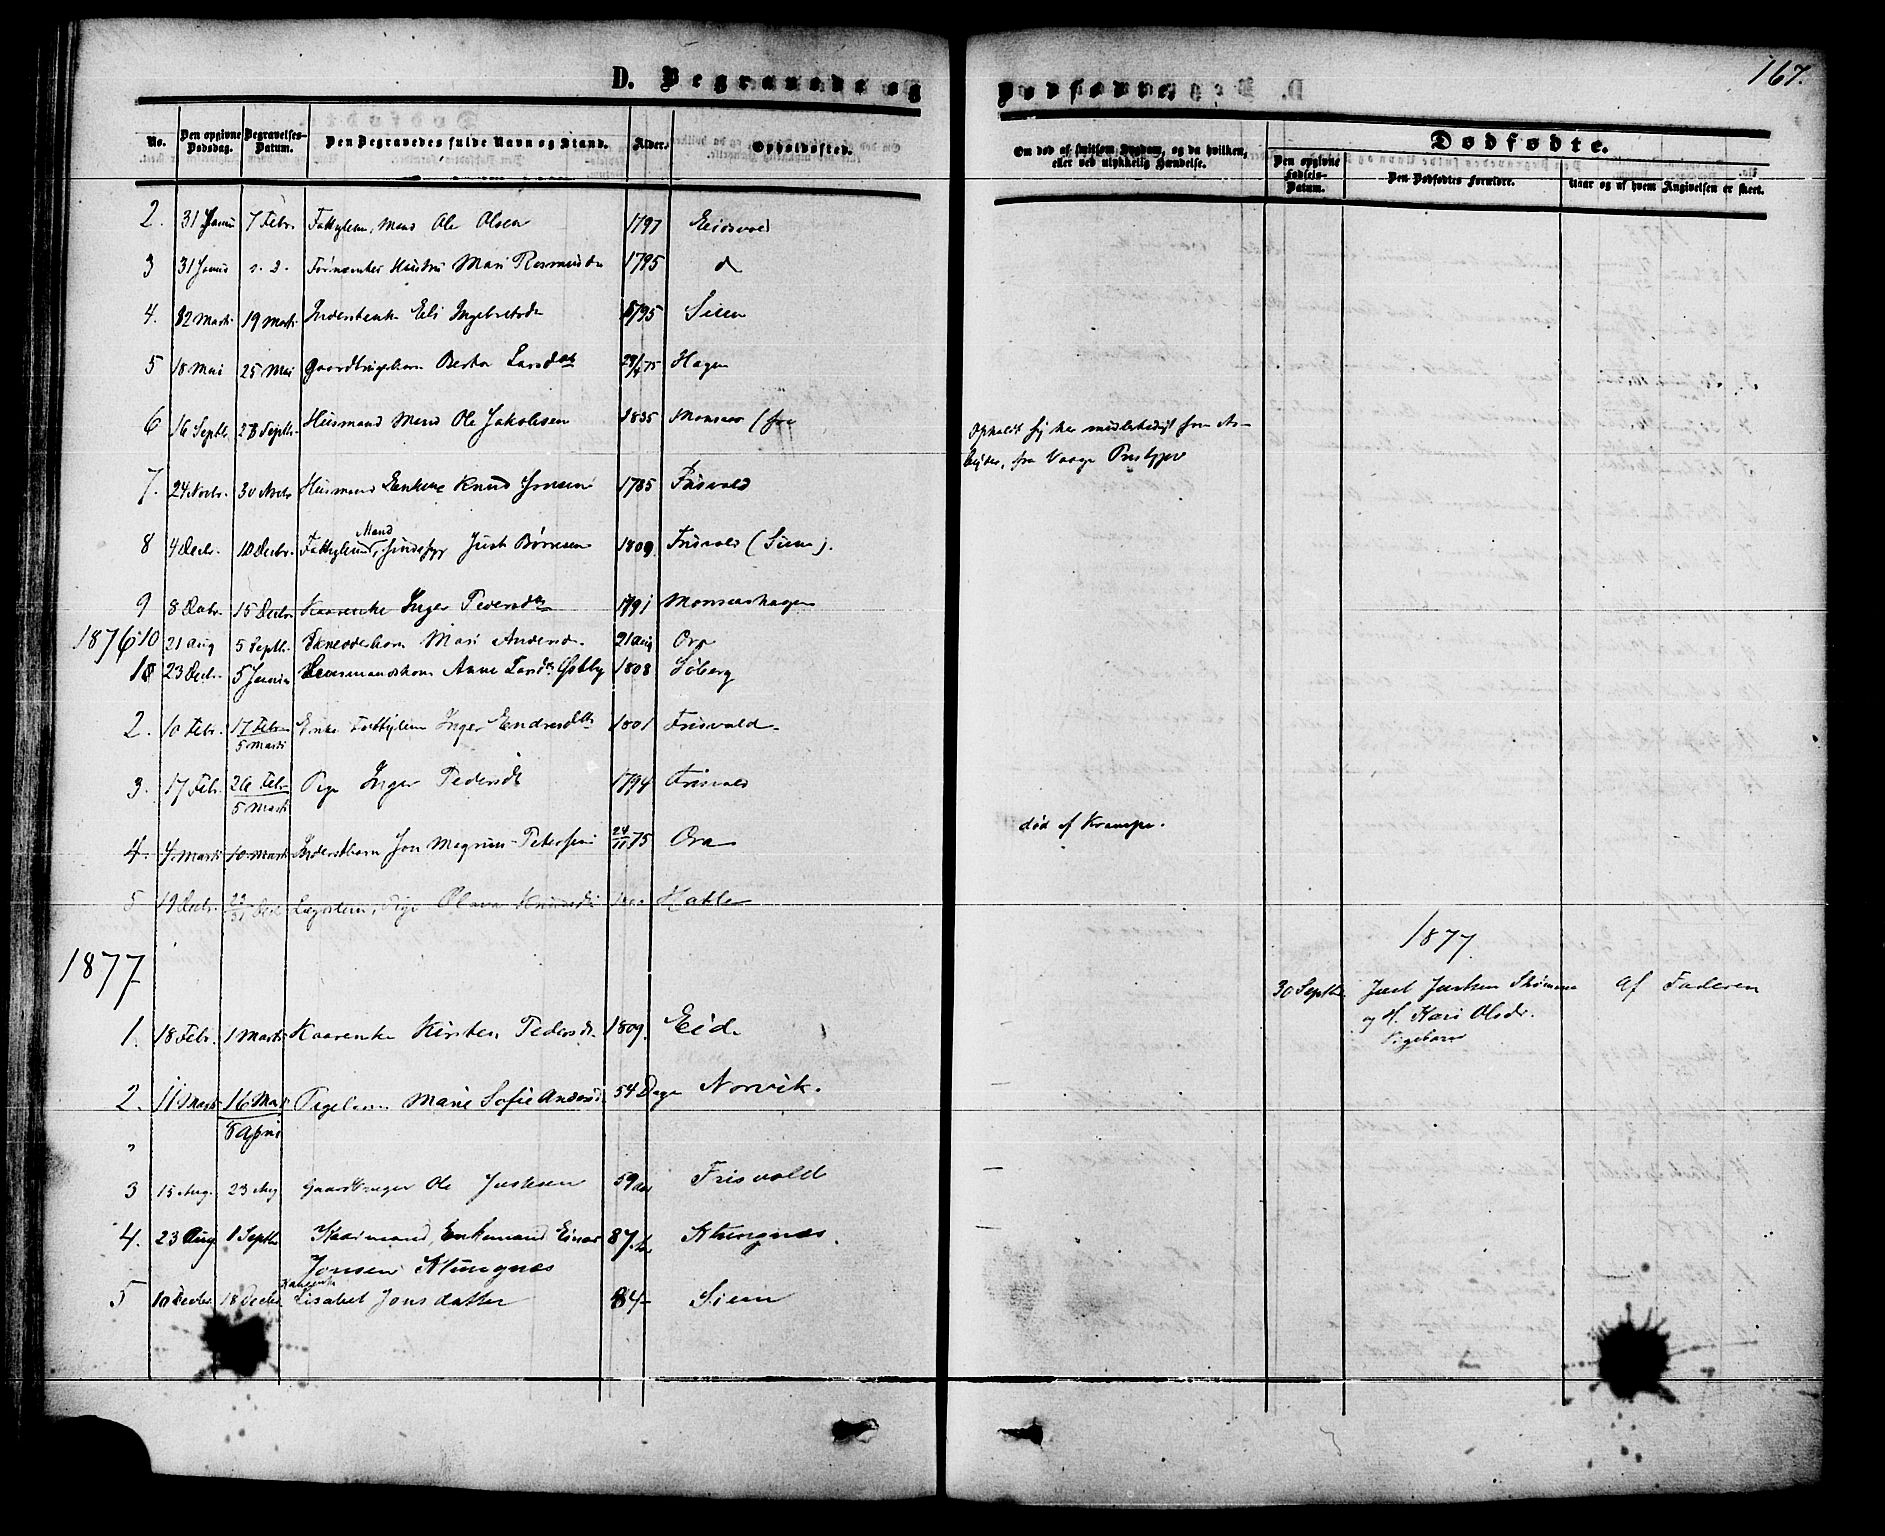 167.
D. Begravede og Dødfødte.
No. Den opgivne Dødsdag. Begravelses-Datum. Den Begravedes fulde Navn og Stand. Alder. Opholdssted. Om død af smitsom Sygdom, og da hvilken, eller ved ulykkelig Hændelse. Dødfødte.
Den opgivne Fødsels-Datum. Den Dødfødtes Forældre. Naar og af hvem Angivelsen er skeet.
2. 31 Janu 7 Febr. Fattiglem, Mand Ole Olsen 1797 Eidsvol
3 31 Janu s. d. Mari Rasmusdr 1795 d
4. 12 Marts 19 Marts Eli Ingebretsdr 1795 Siem
5 18 Mai 25 Mai Gaardbrugerbarn Berta Larsdtr 29/4 75 Hagen
6 16 Septbr. 23 Septbr. Husmand Mand Ole Jakobsen 1835 Monsaas (fra
Opholdt sig her midlertidigt som Ar-
beider, fra Vaage Prstgjæ
7. 24 Novbr. 30 Novbr Husmand Enkem Knud Jonsen 1785 Frisvold
8 4 Decbr. 10 Decbr. Fattiglem, Mand Just Børresen 1809. Frisvold (Siem).
9 8 Decbr. 15 Decbr. Kaarenke Inger Pedersdtr 1791 Monsaashagen
1876 10 21 Aug 5 Septbr. Mari Andersd. 21 Aug Ora
1 23 Decbr. 5 Janu Lensmandskone Anne Larsdtr Østby 1808 Søberg
2. 10 Febr. 17 Febr 5 Marts Enke Fattiglem Inger Endresdtr 1801 Frisvold
3. 17 Febr. 26 Febr 5 Marts Pige Inger Pedersdt 1794 Frisvold
4. 4 Marts 10 Marts Inderstbarn Jon Magnus Petersen 24/11 75 Ora død af Krampe.
5 19 Decbr. Lægdslem, Pige Olava Knudsdt Hatle
1877 1877.
30 Septbr. Just Justsen Strømme Af Faderen
og H. Kari Olsdr.
Pigebarn
1. 18 Febr. 1 Marts Kaarenke Kirsten Pedersdr. 1809. Eid.
2. 11 Marts 16 Mar 8 April Pigebarn Marie Sofie Andersd. 54 Dage Norvik.
3 15 Aug. 23 Aug Gaardbruger Ole Justsen 59 Aar Frisvold
4. 23 Aug 1 Septbr Kaarmand, Enkemand Einar 87 Klungnæs.
Jonsen Klungnæs
5 10 Decbr 18 Decbr Kaarenke Lisabet Jonsdatter 84 – Siem